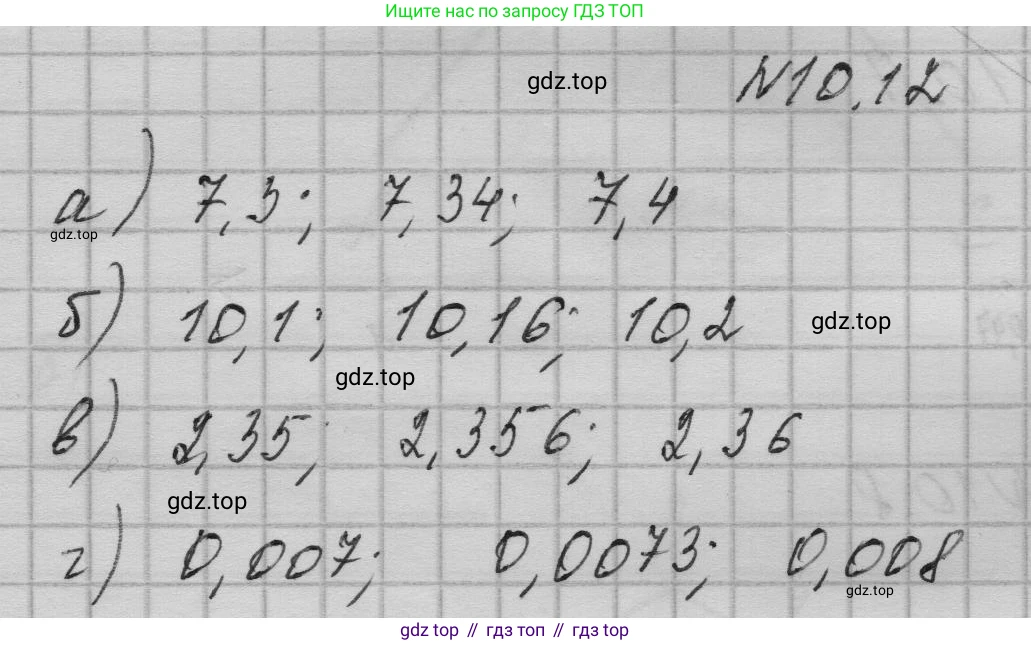 Ищите нас по запросу ГДЗ ТОП
gdz.top
№10.12
а) 7,3; 7,34; 7,4
gdz.top
б) 10,1; 10,16; 10,2
gdz.top
gdz.top
в) 2,35; 2,356; 2,36
gdz.top
г) 0,007; 0,0073; 0,008
gdz.top
gdz top // гдз топ // гдз top